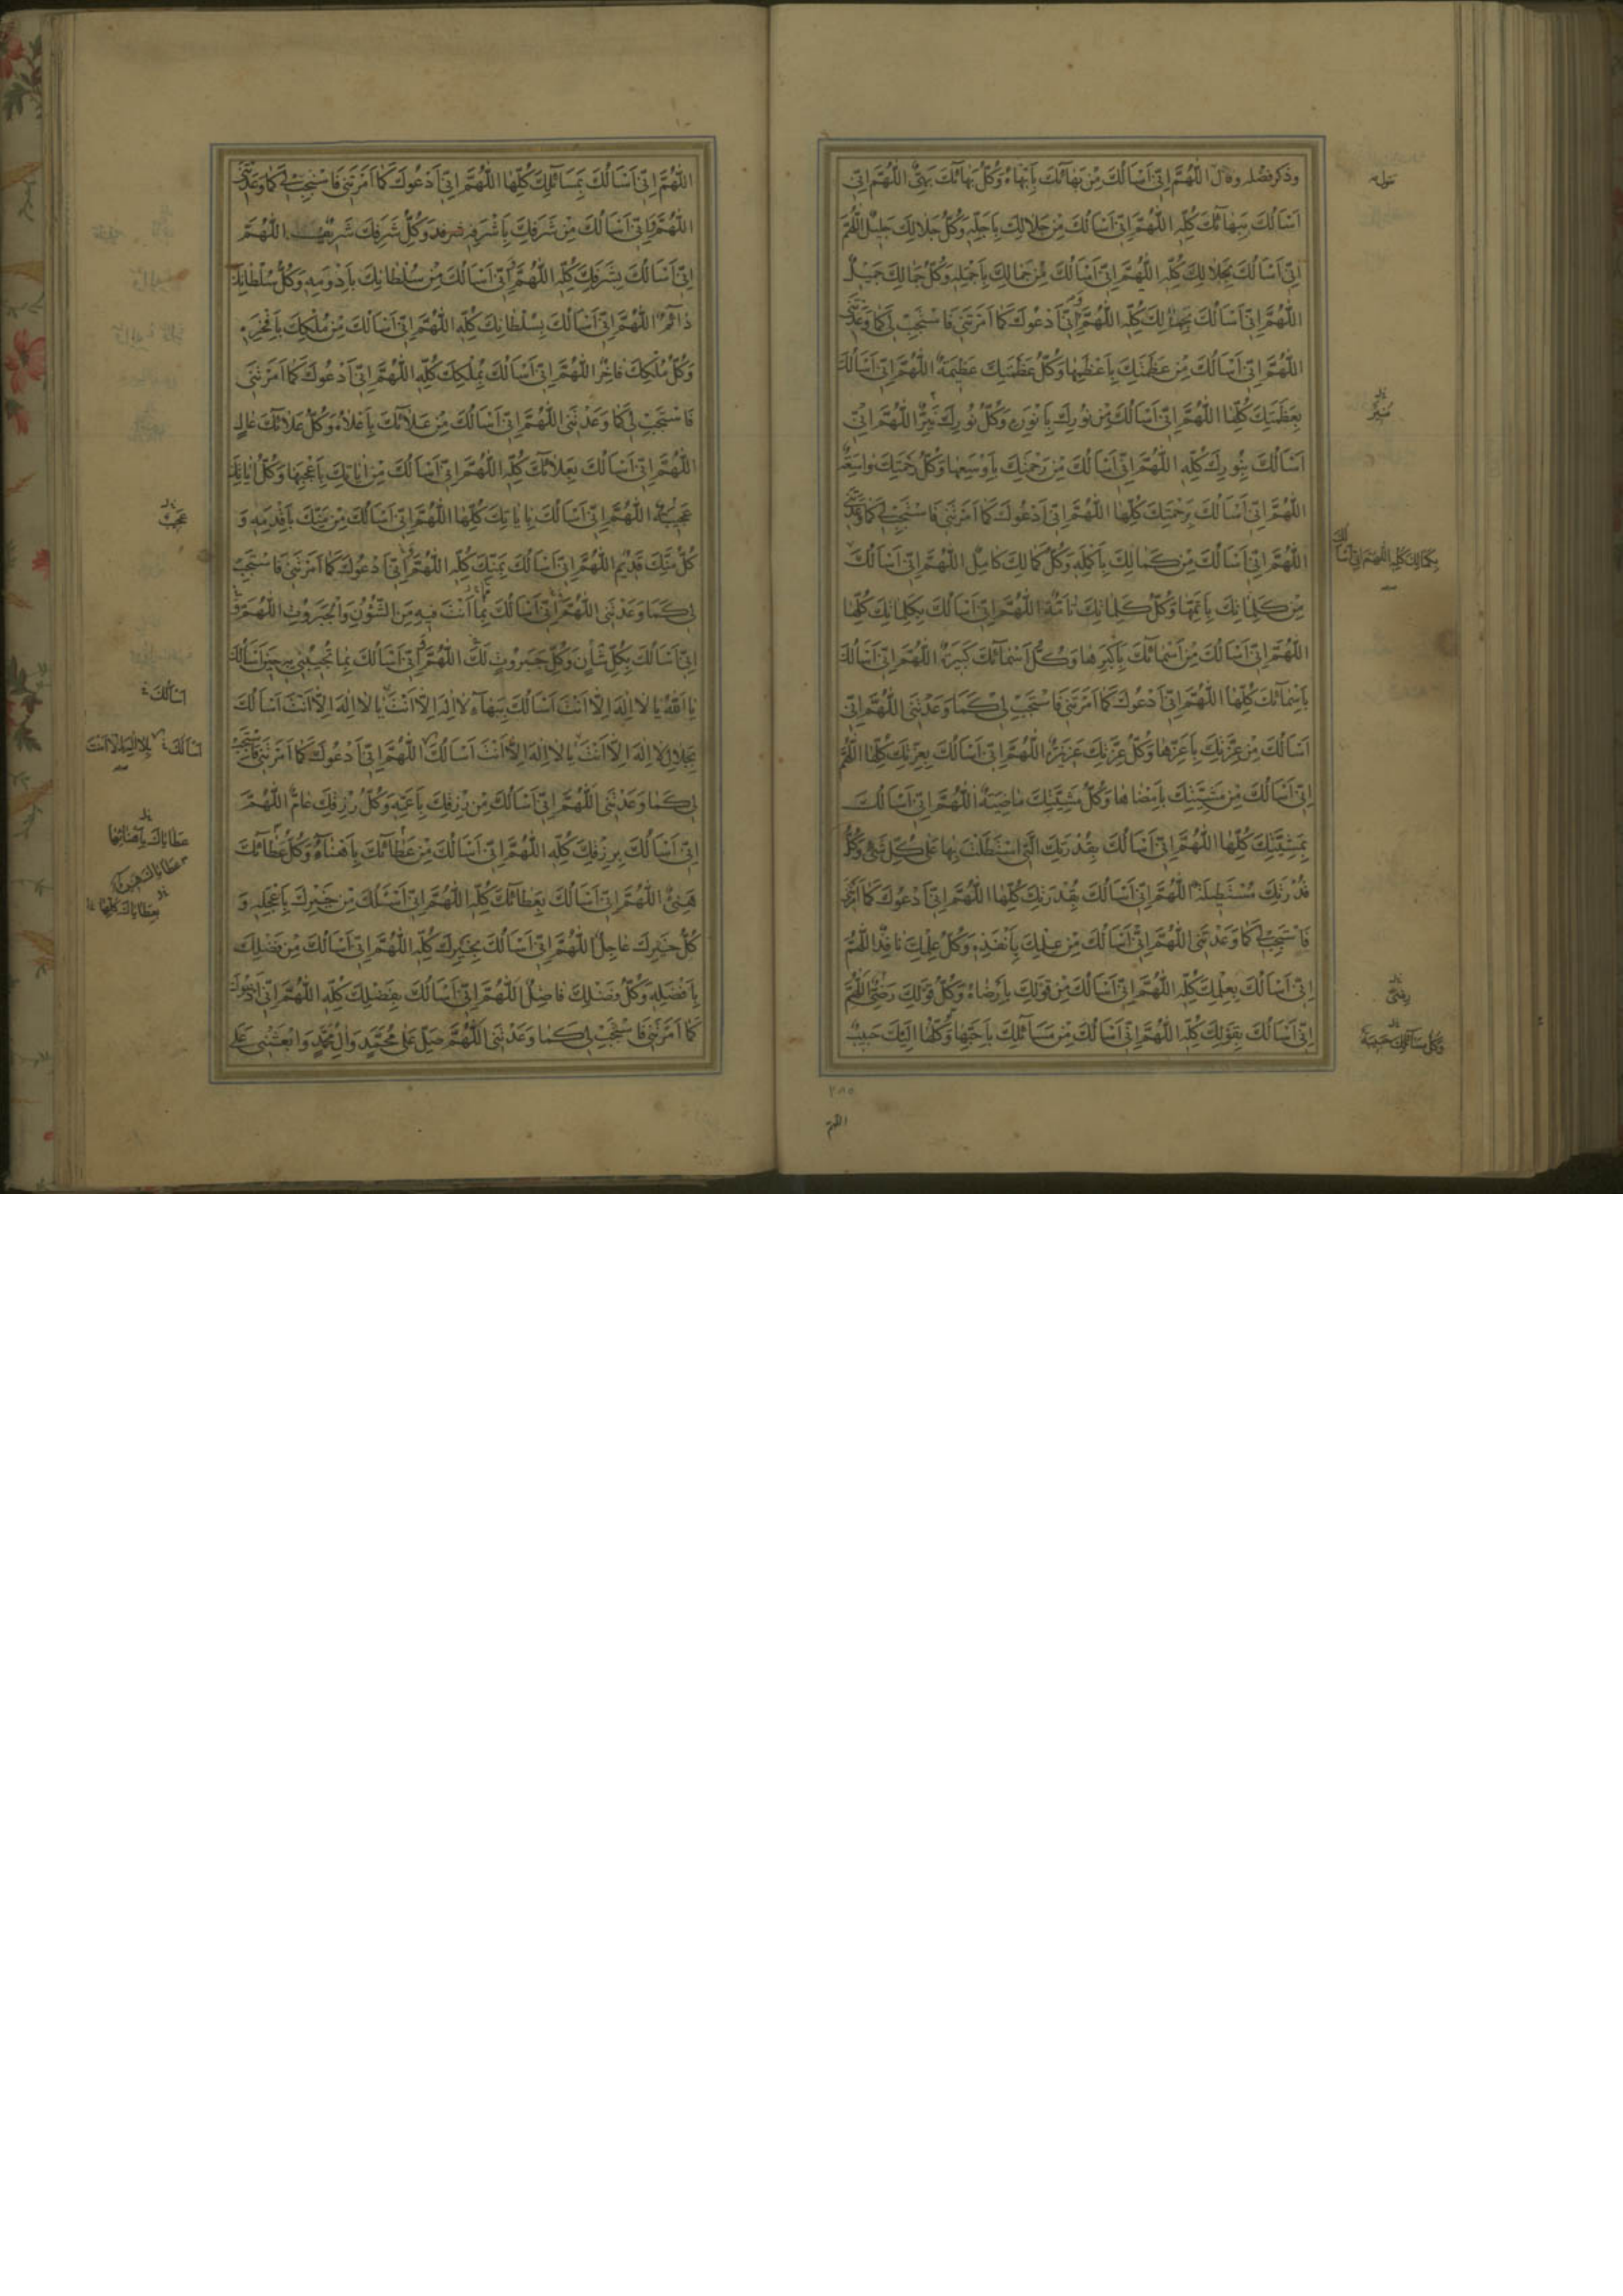 وذكر فضله وقال اللّٰهُمَّ اِنّي اَسْاَلُكَ مِنْ بَهآئِكَ بِاَبْهاهُ وَكُلُّ بَهآئِكَ بَهِيٌّ اللّٰهُمَّ اِنّي
اَسْاَلُكَ بِبَهآئِكَ كُلِّهِ اللّٰهُمَّ اِنّي اَسْاَلُكَ مِنْ جَلالِكَ بِاَجَلِّهِ وَكُلُّ جَلالِكَ جَليلٌ اللّٰهُمَّ
اِنّي اَسْاَلُكَ بِجَلالِكَ كُلِّهِ اللّٰهُمَّ اِنّي اَسْاَلُكَ مِنْ جَمالِكَ بِاَجْمَلِهِ وَكُلُّ جَمالِكَ جَميلٌ
اللّٰهُمَّ اِنّي اَسْاَلُكَ بِجَمالِكَ كُلِّهِ اللّٰهُمَّ اِنّي اَدْعُوكَ كَما اَمَرْتَني فَاسْتَجِبْ لي كَما وَعَدْتَني
اللّٰهُمَّ اِنّي اَسْاَلُكَ مِنْ عَظَمَتِكَ بِاَعْظَمِها وَكُلُّ عَظَمَتِكَ عَظيمَةٌ اللّٰهُمَّ اِنّي اَسْاَلُكَ
بِعَظَمَتِكَ كُلِّها اللّٰهُمَّ اِنّي اَسْاَلُكَ مِنْ نُورِكَ بِاَنْوَرِهِ وَكُلُّ نُورِكَ نَيِّرٌ اللّٰهُمَّ اِنّي
اَسْاَلُكَ بِنُورِكَ كُلِّهِ اللّٰهُمَّ اِنّي اَسْاَلُكَ مِنْ رَحْمَتِكَ بِاَوْسَعِها وَكُلُّ رَحْمَتِكَ واسِعَةٌ
اللّٰهُمَّ اِنّي اَسْاَلُكَ بِرَحْمَتِكَ كُلِّها اللّٰهُمَّ اِنّي اَدْعُوكَ كَما اَمَرْتَني فَاسْتَجِبْ لي كَما وَعَدْتَني
اللّٰهُمَّ اِنّي اَسْاَلُكَ مِنْ كَمالِكَ بِاَكْمَلِهِ وَكُلُّ كَمالِكَ كامِلٌ اللّٰهُمَّ اِنّي اَسْاَلُكَ
مِنْ كَلِماتِكَ بِاَتَمِّها وَكُلُّ كَلِماتِكَ تامَّةٌ اللّٰهُمَّ اِنّي اَسْاَلُكَ بِكَلِماتِكَ كُلِّها
اللّٰهُمَّ اِنّي اَسْاَلُكَ مِنْ اَسْمآئِكَ بِاَكْبَرِها وَكُلُّ اَسْمآئِكَ كَبيرَةٌ اللّٰهُمَّ اِنّي اَسْاَلُكَ
بِاَسْمآئِكَ كُلِّها اللّٰهُمَّ اِنّي اَدْعُوكَ كَما اَمَرْتَني فَاسْتَجِبْ لي كَما وَعَدْتَني اللّٰهُمَّ اِنّي
اَسْاَلُكَ مِنْ عِزَّتِكَ بِاَعَزِّها وَكُلُّ عِزَّتِكَ عَزيزَةٌ اللّٰهُمَّ اِنّي اَسْاَلُكَ بِعِزَّتِكَ كُلِّها اللّٰهُمَّ
اِنّي اَسْاَلُكَ مِنْ مَشِيَّتِكَ بِاَمْضاها وَكُلُّ مَشِيَّتِكَ ماضِيَةٌ اللّٰهُمَّ اِنّي اَسْاَلُكَ
بِمَشِيَّتِكَ كُلِّها اللّٰهُمَّ اِنّي اَسْاَلُكَ بِقُدْرَتِكَ الَّتي اسْتَطَلْتَ بِها عَلى كُلِّ شَيْءٍ وَكُلُّ
قُدْرَتِكَ مُسْتَطيلَةٌ اللّٰهُمَّ اِنّي اَسْاَلُكَ بِقُدْرَتِكَ كُلِّها اللّٰهُمَّ اِنّي اَدْعُوكَ كَما اَمَرْتَني
فَاسْتَجِبْ لي كَما وَعَدْتَني اللّٰهُمَّ اِنّي اَسْاَلُكَ مِنْ عِلْمِكَ بِاَنْفَذِهِ وَكُلُّ عِلْمِكَ نافِذٌ اللّٰهُمَّ
اِنّي اَسْاَلُكَ بِعِلْمِكَ كُلِّهِ اللّٰهُمَّ اِنّي اَسْاَلُكَ مِنْ قَوْلِكَ بِاَرْضاهُ وَكُلُّ قَوْلِكَ رَضِيٌّ اللّٰهُمَّ
اِنّي اَسْاَلُكَ بِقَوْلِكَ كُلِّهِ اللّٰهُمَّ اِنّي اَسْاَلُكَ مِنْ مَسآئِلِكَ بِاَحَبِّها وَكُلُّها اِلَيْكَ حَبيبٌ
مُنيرٌ
بِكَمالِكَ كُلِّهِ اللّٰهُمَّ اِنّي اَسْاَلُكَ
رضيٌّ
وَكُلُّ مَسآئِلِكَ حَبيبَةٌ
٢٨٥
اللهم
اللّٰهُمَّ اِنّي اَسْاَلُكَ بِمَسآئِلِكَ كُلِّها اللّٰهُمَّ اِنّي اَدْعُوكَ كَما اَمَرْتَني فَاسْتَجِبْ لي كَما وَعَدْتَني
اللّٰهُمَّ وَاِنّي اَسْاَلُكَ مِنْ شَرَفِكَ بِاَشْرَفِهِ وَكُلُّ شَرَفِكَ شَريفٌ اللّٰهُمَّ
اِنّي اَسْاَلُكَ بِشَرَفِكَ كُلِّهِ اللّٰهُمَّ اِنّي اَسْاَلُكَ مِنْ سُلْطانِكَ بِاَدْوَمِهِ وَكُلُّ سُلْطانِكَ
دآئِمٌ اللّٰهُمَّ اِنّي اَسْاَلُكَ بِسُلْطانِكَ كُلِّهِ اللّٰهُمَّ اِنّي اَسْاَلُكَ مِنْ مُلْكِكَ بِاَفْخَرِهِ
وَكُلُّ مُلْكِكَ فاخِرٌ اللّٰهُمَّ اِنّي اَسْاَلُكَ بِمُلْكِكَ كُلِّهِ اللّٰهُمَّ اِنّي اَدْعُوكَ كَما اَمَرْتَني
فَاسْتَجِبْ لي كَما وَعَدْتَني اللّٰهُمَّ اِنّي اَسْاَلُكَ مِنْ عَلآئِكَ بِاَعْلاهُ وَكُلُّ عَلآئِكَ عالٍ
اللّٰهُمَّ اِنّي اَسْاَلُكَ بِعَلآئِكَ كُلِّهِ اللّٰهُمَّ اِنّي اَسْاَلُكَ مِنْ اياتِكَ بِاَعْجَبِها وَكُلُّ اياتِكَ
عَجيبَةٌ اللّٰهُمَّ اِنّي اَسْاَلُكَ بِاياتِكَ كُلِّها اللّٰهُمَّ اِنّي اَسْاَلُكَ مِنْ مَنِّكَ بِاَقْدَمِهِ وَ
كُلُّ مَنِّكَ قَديمٌ اللّٰهُمَّ اِنّي اَسْاَلُكَ بِمَنِّكَ كُلِّهِ اللّٰهُمَّ اِنّي اَدْعُوكَ كَما اَمَرْتَني فَاسْتَجِبْ
لي كَما وَعَدْتَني اللّٰهُمَّ اِنّي اَسْاَلُكَ بِما اَنْتَ فيهِ مِنَ الشُّؤُنِ وَالْجَبَرُوتِ اللّٰهُمَّ
اِنّي اَسْاَلُكَ بِكُلِّ شَاْنٍ وَكُلِّ جَبَرُوتٍ لَكَ اللّٰهُمَّ اِنّي اَسْاَلُكَ بِما تُجيبُني بِهِ حينَ اَسْاَلُكَ
يا اَللّٰهُ يا لا اِلٰهَ اِلّا اَنْتَ اَسْاَلُكَ بِبَهآءِ لا اِلٰهَ اِلّا اَنْتَ يا لا اِلٰهَ اِلّا اَنْتَ اَسْاَلُكَ
بِجَلالِ لا اِلٰهَ اِلّا اَنْتَ يا لا اِلٰهَ اِلّا اَنْتَ اَسْاَلُكَ اللّٰهُمَّ اِنّي اَدْعُوكَ كَما اَمَرْتَني فَاسْتَجِبْ
لي كَما وَعَدْتَني اللّٰهُمَّ اِنّي اَسْاَلُكَ مِنْ رِزْقِكَ بِاَعَمِّهِ وَكُلُّ رِزْقِكَ عامٌّ اللّٰهُمَّ
اِنّي اَسْاَلُكَ بِرِزْقِكَ كُلِّهِ اللّٰهُمَّ اِنّي اَسْاَلُكَ مِنْ عَطآئِكَ بِاَهْنَاهُ وَكُلُّ عَطآئِكَ
هَنيءٌ اللّٰهُمَّ اِنّي اَسْاَلُكَ بِعَطآئِكَ كُلِّهِ اللّٰهُمَّ اِنّي اَسْئَلُكَ مِنْ خَيْرِكَ بِاَعْجَلِهِ وَ
كُلُّ خَيْرِكَ عاجِلٌ اللّٰهُمَّ اِنّي اَسْاَلُكَ بِخَيْرِكَ كُلِّهِ اللّٰهُمَّ اِنّي اَسْاَلُكَ مِنْ فَضْلِكَ
بِاَفْضَلِهِ وَكُلُّ فَضْلِكَ فاضِلٌ اللّٰهُمَّ اِنّي اَسْاَلُكَ بِفَضْلِكَ كُلِّهِ اللّٰهُمَّ اِنّي اَدْعُوكَ
كَما اَمَرْتَني فَاسْتَجِبْ لي كَما وَعَدْتَني اللّٰهُمَّ صَلِّ عَلى مُحَمَّدٍ وَالِ مُحَمَّدٍ وَابْعَثْني عَلى
اَسْاَلُكَ
اَسْاَلُكَ بِلا اِلٰهَ اِلّا اَنْتَ
عَطاياكَ بِاَهْنَائِها
عطاياك هنيئة
بِعَطاياكَ كُلِّها